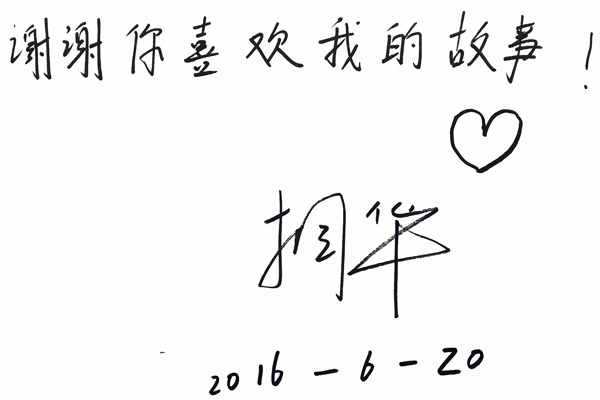 谢谢你喜欢我的故事!
桐华
2016-6-20